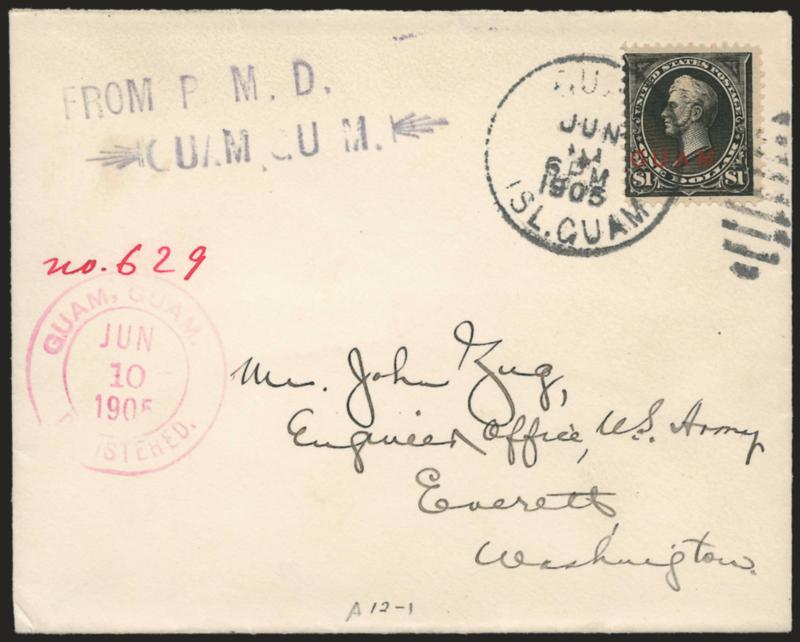 FROM P. M. D.
GUAM, GU M.
GUA
JUN
6 PM
1905
ISL. GUAM
UNITED STATES POSTAGE
GUAM
$1 ONE DOLLAR $1
no. 629
GUAM, GUAM.
JUN
10
1905
REGISTERED.
Mr. John Zug,
Engineer Office, U.S. Army
Everett,
Washington.
A 12-1